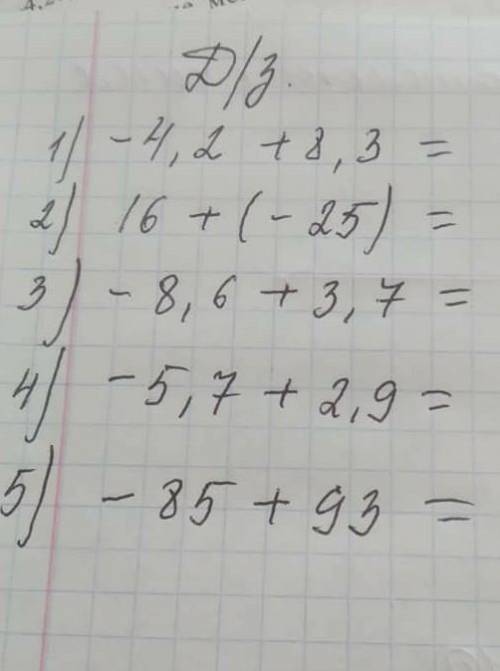 Д/з.
1) -4,2 +8,3 =
2) 16 + (-25) =
3) -8,6 + 3,7 =
4) -5,7 + 2,9 =
5) -85 + 93 =